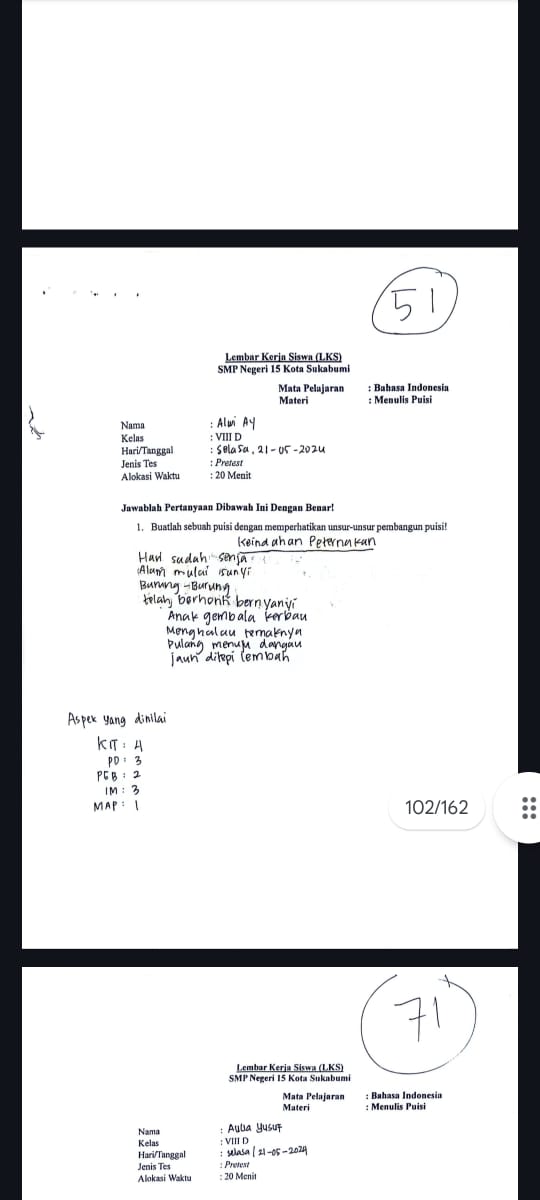 51
Lembar Kerja Siswa (LKS)
SMP Negeri 15 Kota Sukabumi
Mata Pelajaran : Bahasa Indonesia
Materi : Menulis Puisi
Nama : Alwi Ay
Kelas : VIII D
Hari/Tanggal : Selasa, 21-05-2024
Jenis Tes : Pretest
Alokasi Waktu : 20 Menit
Jawablah Pertanyaan Dibawah Ini Dengan Benar!
1. Buatlah sebuah puisi dengan memperhatikan unsur-unsur pembangun puisi!
Keindahan Peternakan
Hari sudah senja
Alam mulai sunyi
Burung-Burung
telah berhenti bernyanyi
Anak gembala kerbau
Menghalau ternaknya
Pulang menuju dangau
jauh ditepi lembah
Aspek yang dinilai
KIT : 4
PD : 3
PGB : 2
IM : 3
MAP : 1
102/162
71
Lembar Kerja Siswa (LKS)
SMP Negeri 15 Kota Sukabumi
Mata Pelajaran : Bahasa Indonesia
Materi : Menulis Puisi
Nama : Aulia Yusuf
Kelas : VIII D
Hari/Tanggal : selasa / 21-05-2024
Jenis Tes : Pretest
Alokasi Waktu : 20 Menit